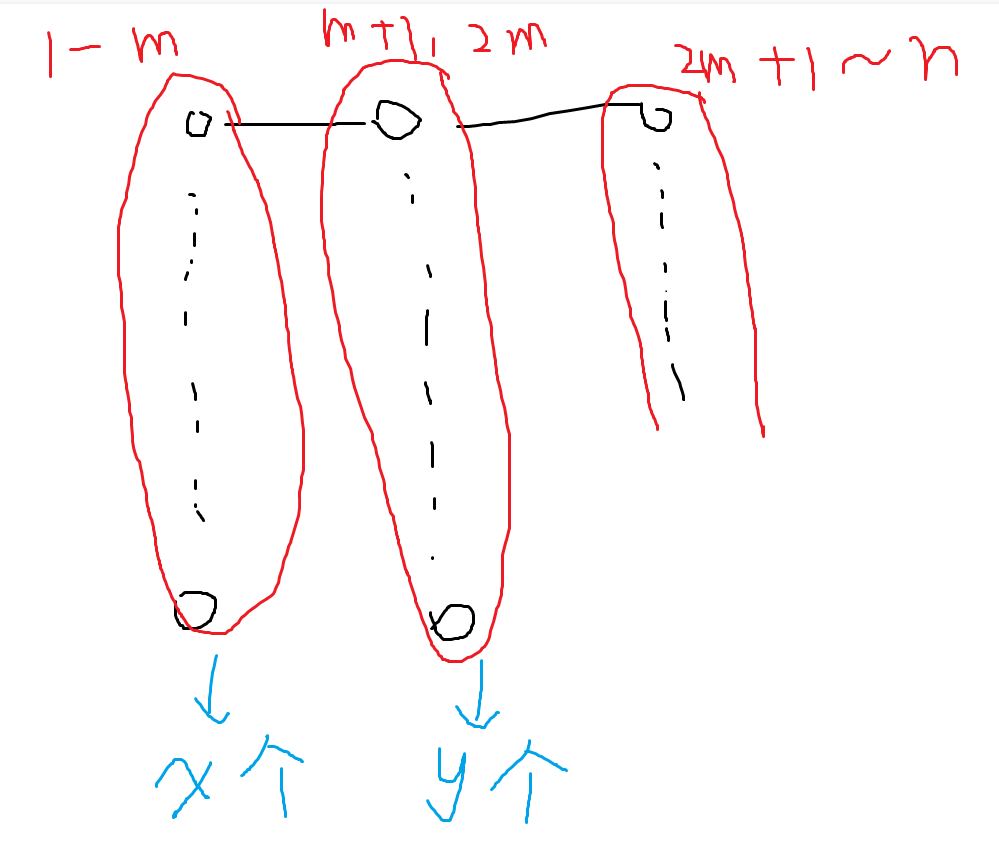 1 - m
m+1, 2m
2m+1~n
x个
y个